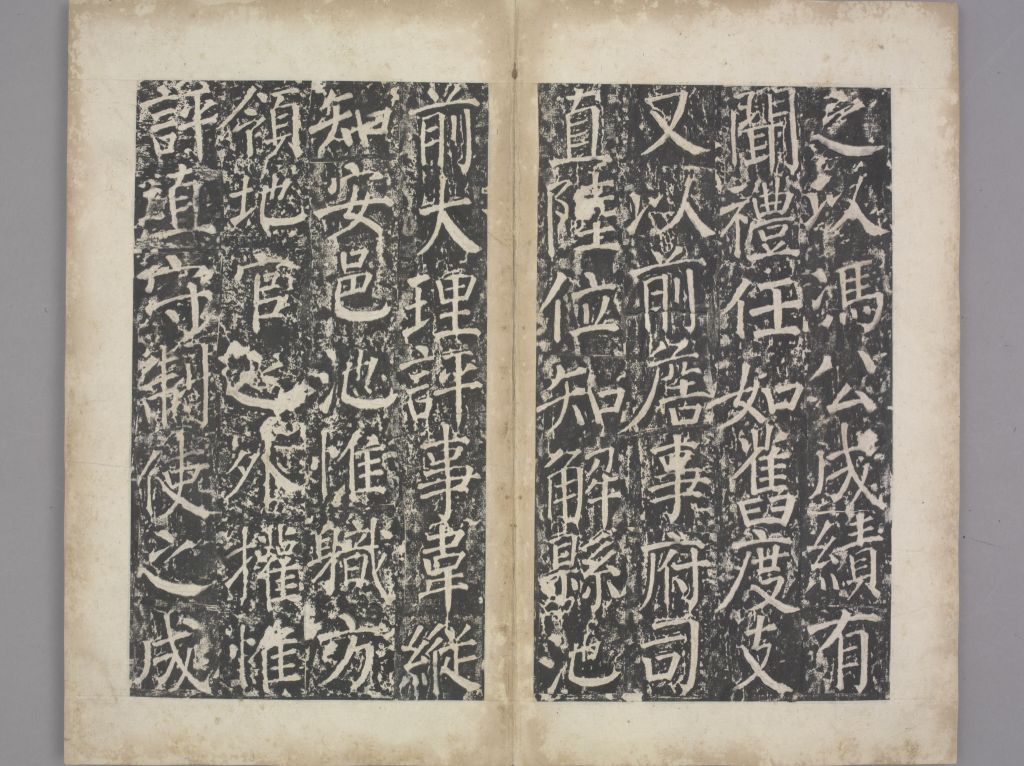 之以馮公成績有
聞禮任如舊度支
又以前詹事府司
直陸位知解縣池
前大理評事韋縱
知安邑池惟職方
領地官之外擢惟
評直守制使之成